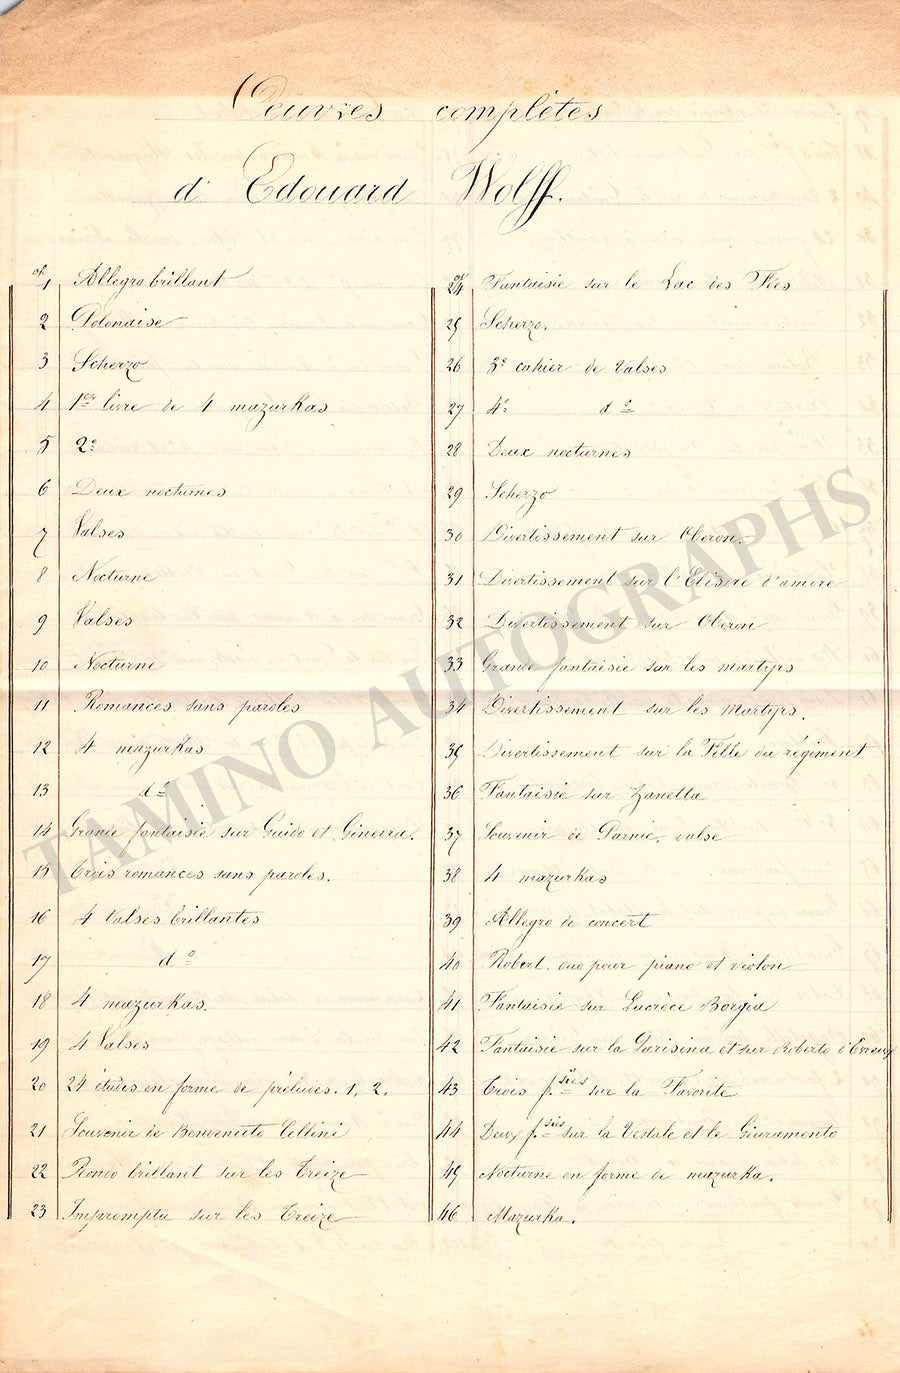 Oeuvres complètes
d'Edouard Wolff.
op. 1 Allegro brillant
2 Polonaise
3 Scherzo
4 1er livre de 4 mazurkas
5 2e
6 Deux nocturnes
7 Valses
8 Nocturne
9 Valses
10 Nocturne
11 Romances sans paroles
12 4 mazurkas
13 do
14 Grande fantaisie sur Guido et Ginevra.
15 Trois romances sans paroles.
16 4 Valses brillantes
17 do
18 4 mazurkas.
19 4 Valses
20 24 études en forme de préludes. 1, 2.
21 Souvenir de Benvenuto Cellini
22 Rondo brillant sur les Treize
23 Impromptu sur les Treize
op. 24 Fantaisie sur le Lac des Fées
25 Scherzo.
26 3e cahier de Valses
27 4e do
28 Deux nocturnes
29 Scherzo
30 Divertissement sur Oberon.
31 Divertissement sur l'Elisire d'amore
32 Divertissement sur Oberon
33 Grande fantaisie sur les martyrs
34 Divertissement sur les Martyrs.
35 Divertissement sur la Fille du régiment
36 Fantaisie sur Zanetta
37 Souvenir de Parnic, valse
38 4 mazurkas
39 Allegro de concert
40 Robert. duo pour piano et violon
41 Fantaisie sur Lucrèce Borgia
42 Fantaisie sur la Parisina et sur Roberto d'Evreux
43 Trois f.sies sur la Favorite
44 Deux f.sies sur la Vestale et le Giuramento
45 Nocturne en forme de mazurka.
46 Mazurka.
TAMINO AUTOGRAPHS